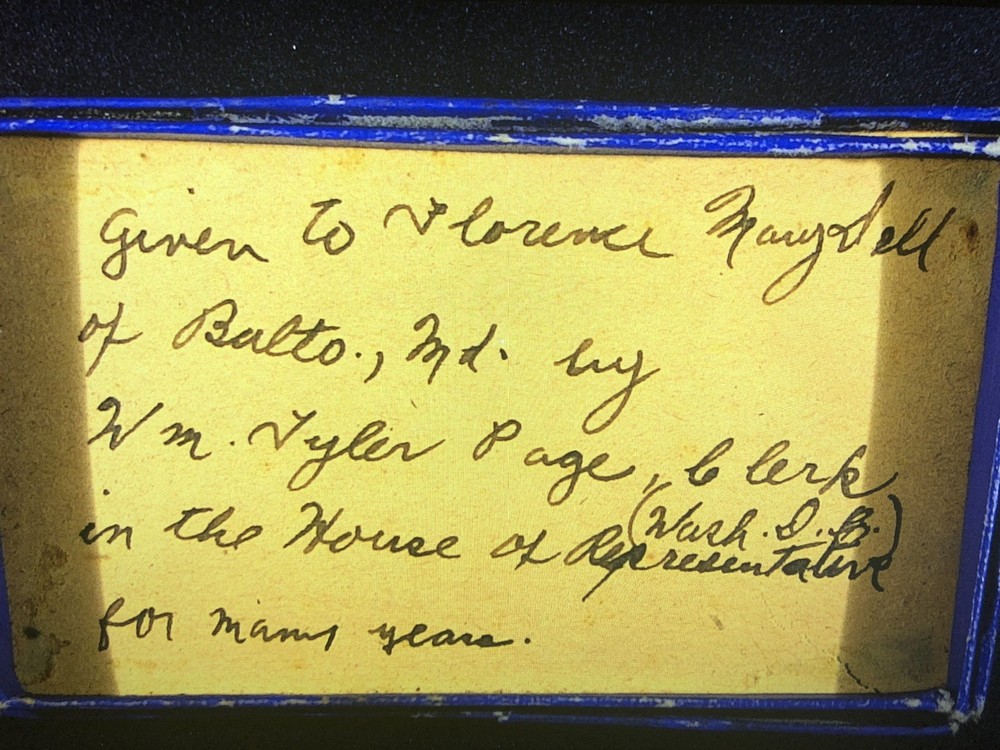 Given to Florence
of Balto., Md. by
Wm. Tyler Page, Clerk
(Wash. D.C.)
in the House of Representative
for many years.